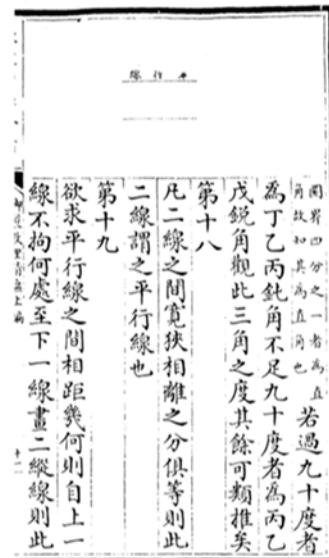 平行線
圜界四分之一者為直
角故知其為直角也
若過九十度者
為丁乙丙鈍角不足九十度者為丙乙
戊銳角觀此三角之度其餘可類推矣
第十八
凡二線之間寬狹相離之分俱等則此
二線謂之平行線也
第十九
欲求平行線之間相距幾何則自上一
線不拘何處至下一線畫二縱線則此